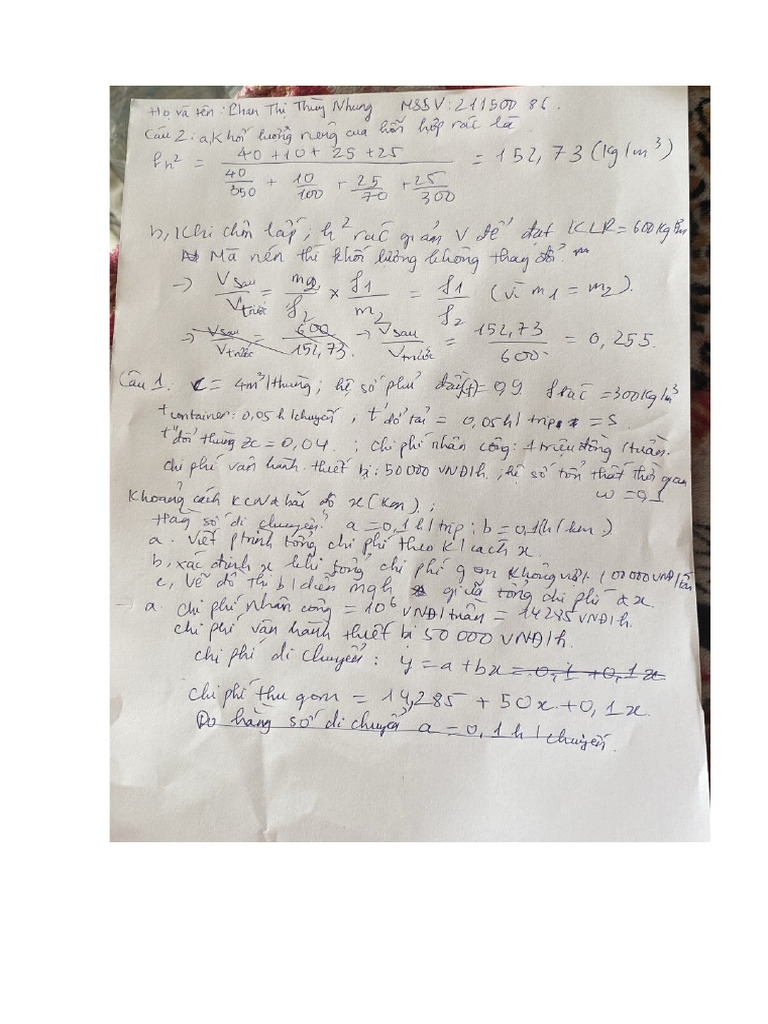 Họ và tên: Phan Thị Thùy Nhung MSSV: 211500 85.
Câu 2: a, Khối lượng riêng của hỗn hợp rác là
ρh² = (40 + 10 + 25 + 25) / (40/350 + 10/100 + 25/70 + 25/300) = 152,73 (kg/m³)
b, Khi chôn lấp, h² rác giảm V để đạt KLR = 600 kg/m³
Mà nén thì khối lượng không thay đổi.
→ Vsau/Vtrước = m2/ρ2 × ρ1/m2 = ρ1/ρ2 (vì m1 = m2).
→ Vsau/Vtrước = 600/152,73. → Vsau/Vtrước = 152,73/600 = 0,255.
Câu 1. c = 4m³/thùng; hệ số phủ đầy(f) = 0,9 ρrác = 300kg/m³
t container: 0,05 h/chuyến; t đổ tải = 0,05h/trip = S.
t đổi thùng = 0,04. ; chi phí nhân công: 1 triệu đồng/tuần.
chi phí vận hành thiết bị: 50 000 VNĐ/h, hệ số tổn thất thời gian
w = 0,1
Khoảng cách KCN & bãi đổ x (km);
Hằng số di chuyển a = 0,1 h/trip; b = 0,1(h/km)
a. Viết ptrình tổng chi phí theo k/cách x.
b, xác định x khi tổng chi phí gom không vượt 100000 vnđ/tấn
c, Vẽ đồ thị b/diễn mqh giữa tổng chi phí & x.
→ a. chi phí nhân công = 10⁶ VNĐ/tuần = 14285 VNĐ/h.
chi phí vận hành thiết bị 50 000 VNĐ/h.
chi phí di chuyển: y = a + bx = 0,1 + 0,1x
chi phí thu gom = 14,285 + 50x + 0,1x.
Do hằng số di chuyển a = 0,1 h/chuyến.